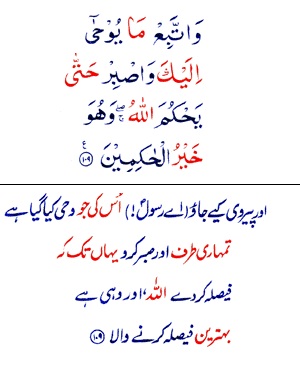 وَاتَّبِعْ مَا يُوْحٰۤى
اِلَيْكَ وَاصْبِرْ حَتّٰى
يَحْكُمَ اللّٰهُ ۖۚ وَهُوَ
خَيْرُ الْحٰكِمِيْنَ ﴿۱۰۹﴾ ع
اور پیروی کیے جاؤ (اے رسولؐ!) اُس کی جو وحی کیا گیا ہے
تمہاری طرف اور صبر کرو یہاں تک کہ
فیصلہ کردے اللہ، اور وہی ہے
بہترین فیصلہ کرنے والا ﴿۱۰۹﴾